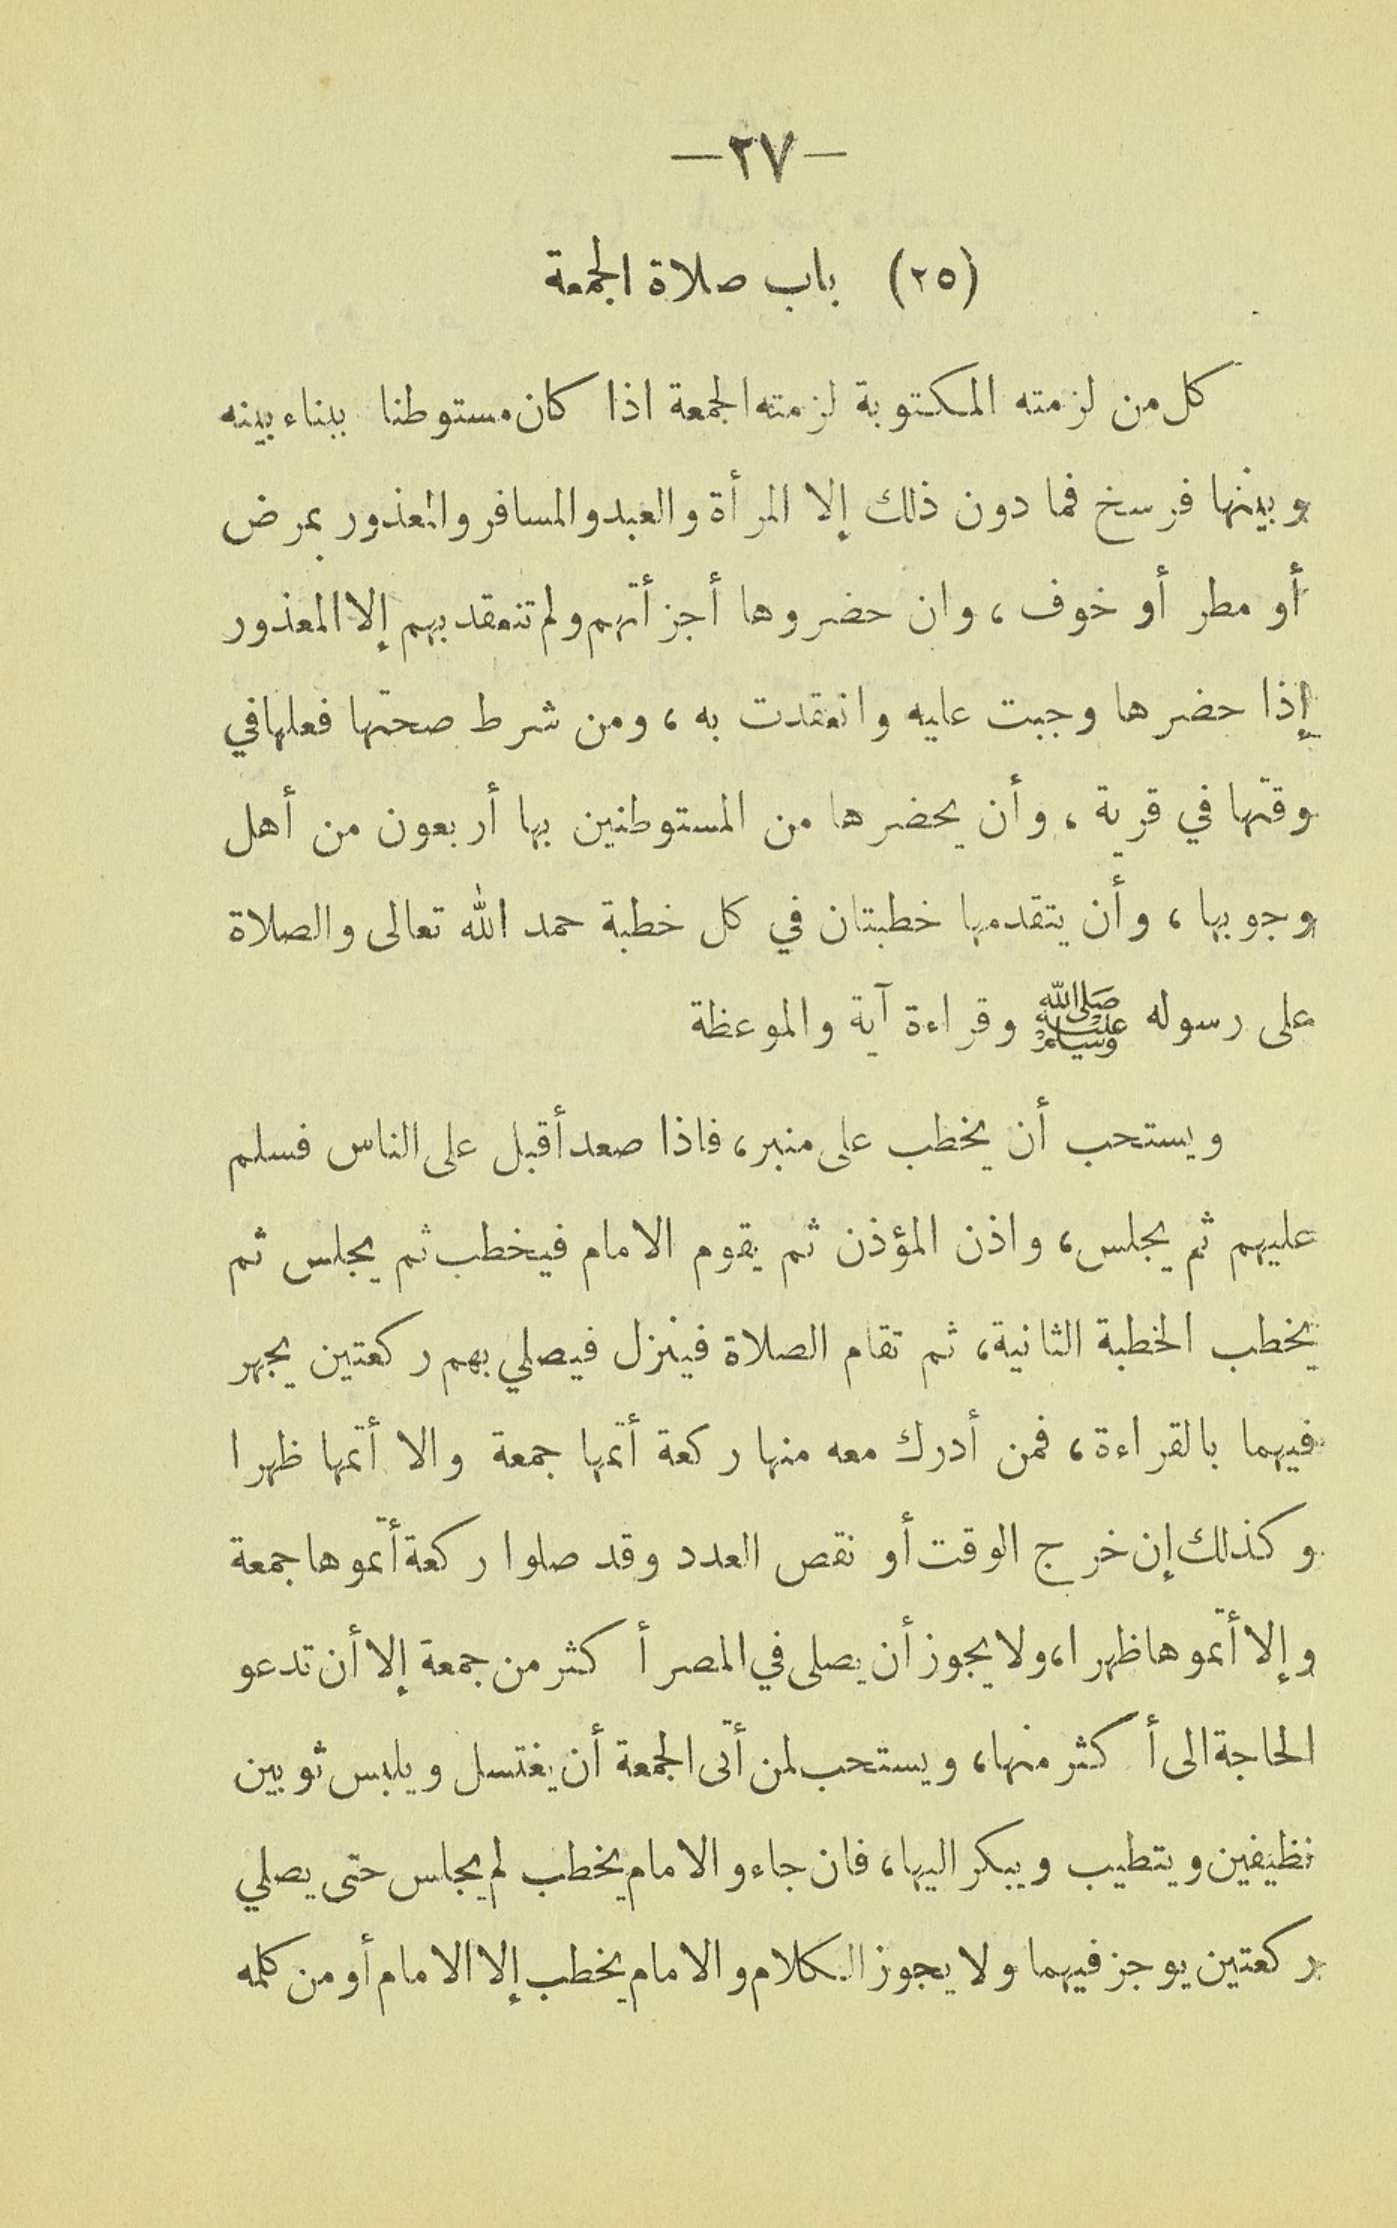 —٢٧—
(٢٥) باب صلاة الجمعة
كل من لزمته المكتوبة لزمته الجمعة اذا كان مستوطنا ببناء بينه
وبينها فرسخ فما دون ذلك إلا المرأة والعبد والمسافر والمعذور بمرض
أو مطر أو خوف ، وان حضروها أجزأتهم ولم تنعقد بهم إلا المعذور
إذا حضرها وجبت عليه وانعقدت به ، ومن شرط صحتها فعلها في
وقتها في قرية ، وأن يحضرها من المستوطنين بها أربعون من أهل
وجوبها ، وأن يتقدمها خطبتان في كل خطبة حمد الله تعالى والصلاة
على رسوله ﷺ وقراءة آية والموعظة
ويستحب أن يخطب على منبر، فاذا صعد أقبل على الناس فسلم
عليهم ثم يجلس، واذن المؤذن ثم يقوم الامام فيخطب ثم يجلس ثم
يخطب الخطبة الثانية، ثم تقام الصلاة فينزل فيصلي بهم ركعتين يجهر
فيهما بالقراءة، فمن أدرك معه منها ركعة أتمها جمعة والا أتمها ظهرا
وكذلك إن خرج الوقت أو نقص العدد وقد صلوا ركعة أتموها جمعة
وإلا أتموها ظهرا، ولا يجوز أن يصلى في المصر أكثر من جمعة إلا أن تدعو
الحاجة الى أكثر منها، ويستحب لمن أتى الجمعة أن يغتسل ويلبس ثوبين
نظيفين ويتطيب ويبكر اليها، فان جاء والامام يخطب لم يجلس حتى يصلي
ركعتين يوجز فيهما ولا يجوز الكلام والامام يخطب إلا الامام أو من كلمه